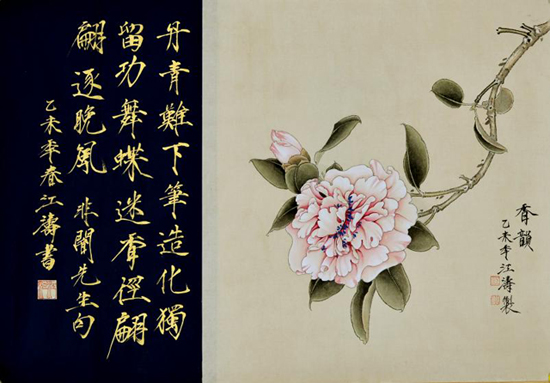 香韻
乙未年江濤製
丹青難下筆造化獨
留功舞蝶迷香徑翩
翩逐晚風 非闇先生句
乙未年春江濤書